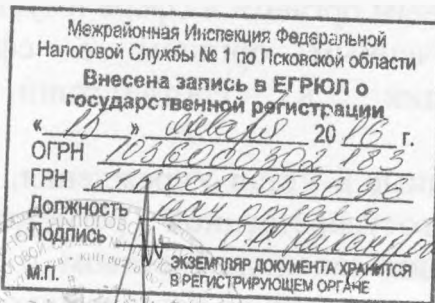 Межрайонная Инспекция Федеральной
Налоговой Службы № 1 по Псковской области
Внесена запись в ЕГРЮЛ о
государственной регистрации
« 15 » января 20 16 г.
ОГРН 1036000302183
ГРН 2166027053696
Должность нач. отдела
Подпись О.Н.
М.П. ЭКЗЕМПЛЯР ДОКУМЕНТА ХРАНИТСЯ
В РЕГИСТРИРУЮЩЕМ ОРГАНЕ